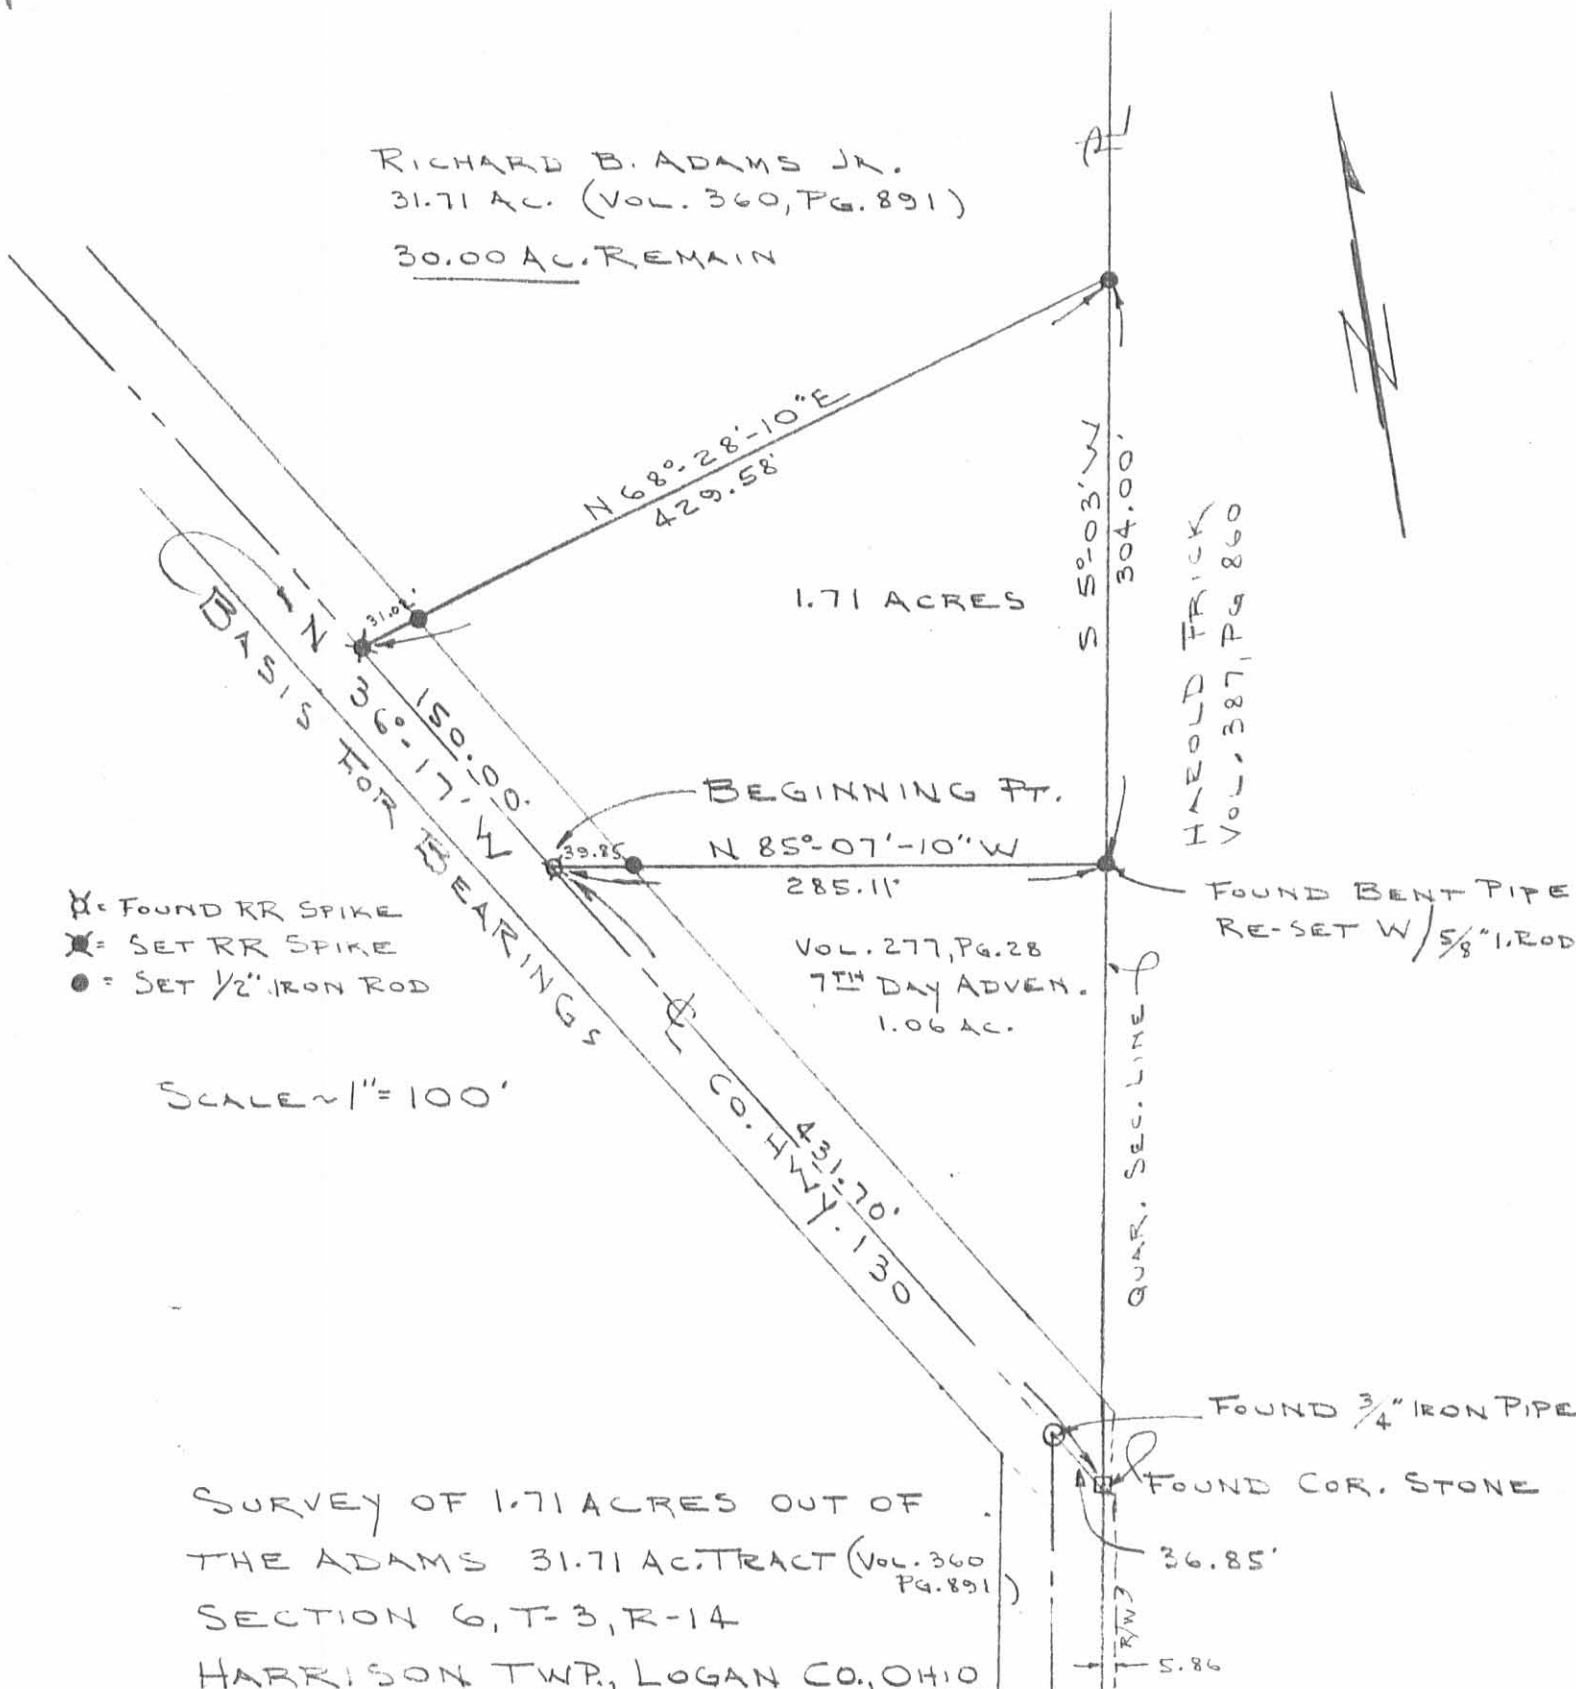 RICHARD B. ADAMS JR.
31.71 AC. (VOL. 360, PG. 891)
30.00 AC. REMAIN
N
N 68°-28'-10"E
429.58'
S 5°-03' W
304.00'
HAROLD FRICK
VOL. 387, PG 860
1.71 ACRES
31.02'
N 36°-17' W
150.00'
BASIS FOR BEARINGS
BEGINNING PT.
39.85
N 85°-07'-10" W
285.11'
FOUND BENT PIPE
RE-SET W/ 5/8" I. ROD
= FOUND RR SPIKE
= SET RR SPIKE
= SET 1/2" IRON ROD
VOL. 277, PG. 28
7TH DAY ADVEN.
1.06 AC.
SCALE ~ 1" = 100'
CO. HWY. 130
431.70'
QUAR. SEC. LINE
FOUND 3/4" IRON PIPE
FOUND COR. STONE
36.85'
R/W
5.86
SURVEY OF 1.71 ACRES OUT OF
THE ADAMS 31.71 AC. TRACT (VOL. 360
PG. 891)
SECTION 6, T-3, R-14
HARRISON TWP., LOGAN CO., OHIO